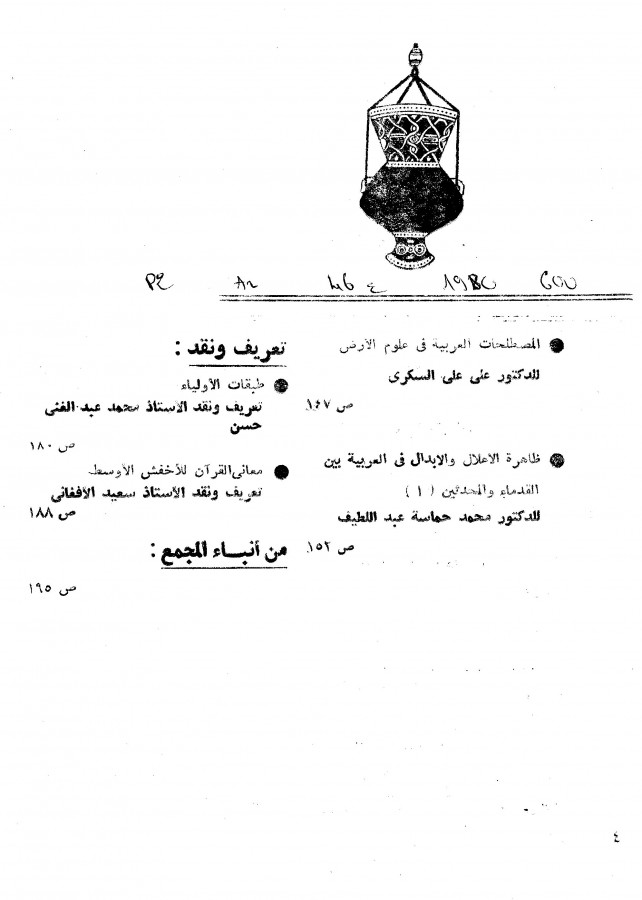 PE Ar 46 ع 1980 COU
● المصطلحات العربية فى علوم الأرض
للدكتور على على السكرى
ص ١٤٧
● ظاهرة الاعلال والابدال فى العربية بين
القدماء والمحدثين ( ١ )
للدكتور محمد حماسة عبد اللطيف
ص ١٥٢
تعريف ونقد :
● طبقات الأولياء
تعريف ونقد الأستاذ محمد عبد الغنى
حسن
ص ١٨٠
● معانى القرآن للأخفش الأوسط
تعريف ونقد الأستاذ سعيد الأفغانى
ص ١٨٨
من أنباء المجمع :
ص ١٩٥
٤